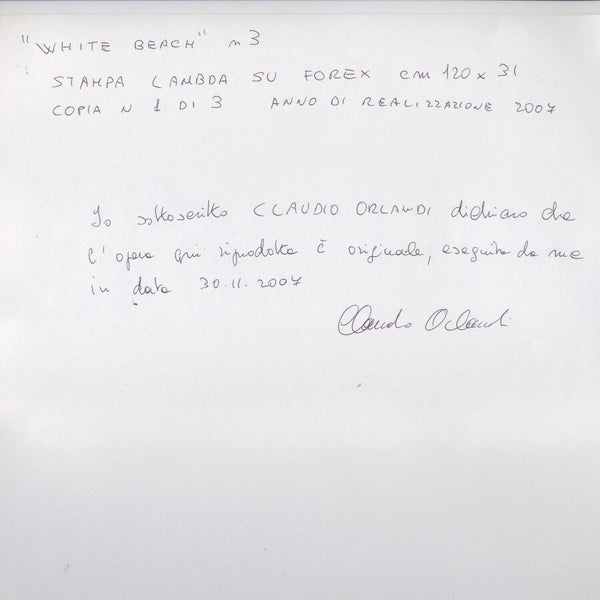 "WHITE BEACH" n 3
STAMPA LAMBDA SU FOREX cm 120 x 31
COPIA N 1 DI 3 ANNO DI REALIZZAZIONE 2007
Io sottoscritto CLAUDIO ORLANDI dichiaro che
l'opera qui riprodotta è originale, eseguita da me
in data 30.11.2007
Claudio Orlandi